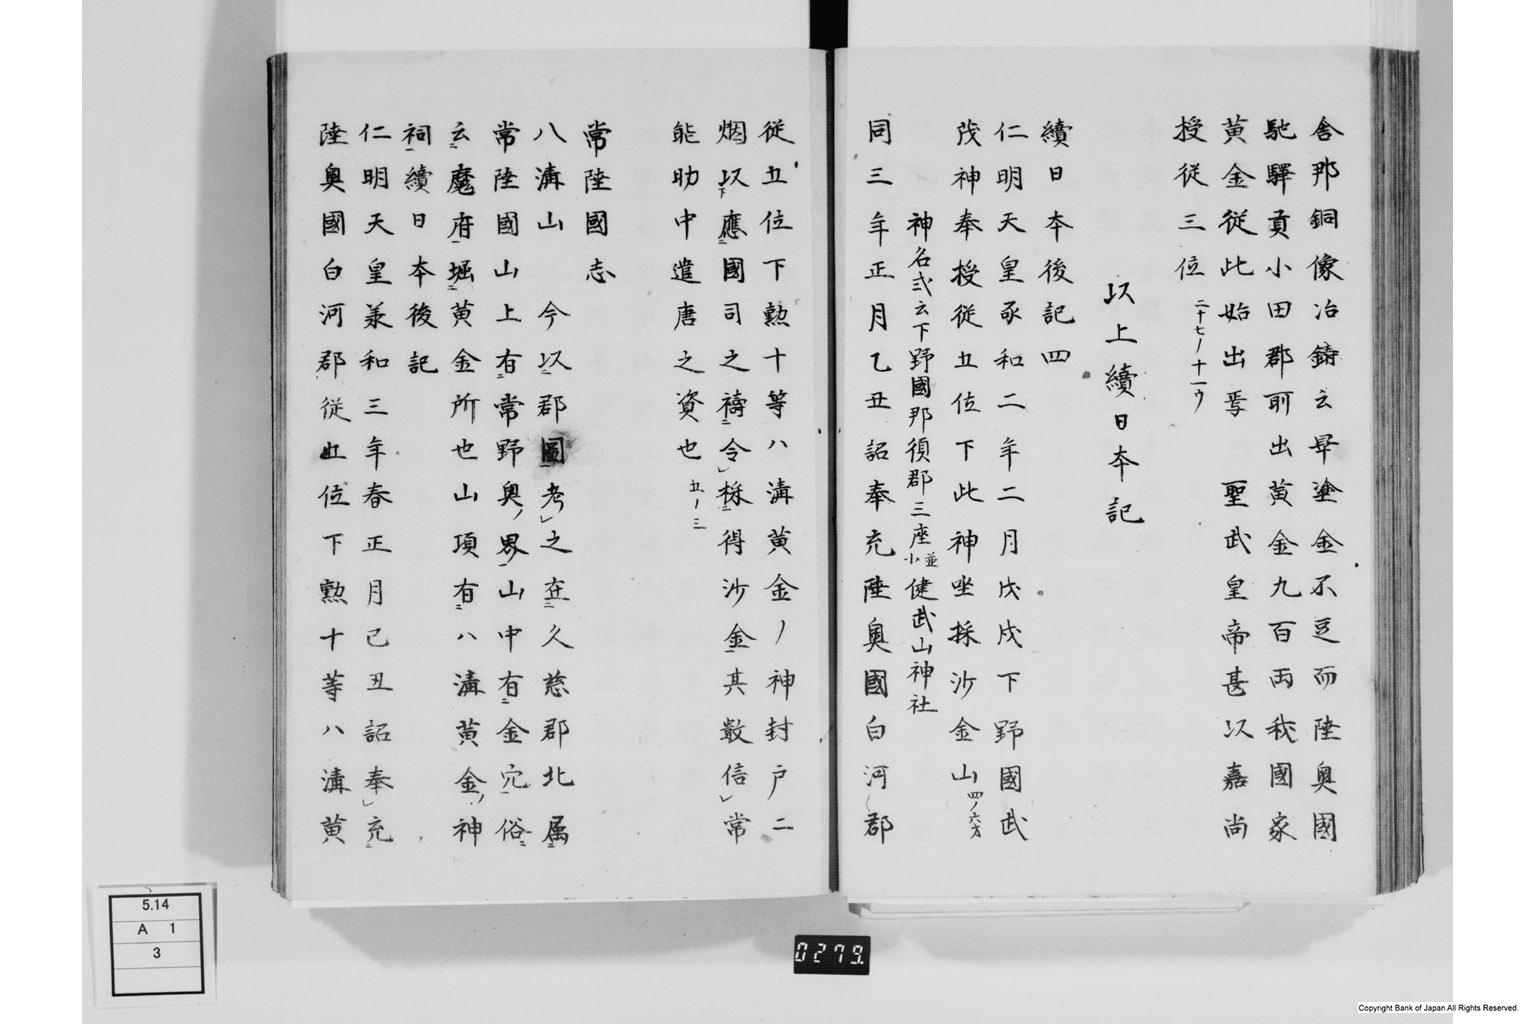 舎那銅像冶鋳云畢塗金不足而陸奥國
馳驛貢小田郡所出黄金九百両我國家
黄金從此始出焉　聖武皇帝甚以嘉尚
授從三位二十七ノ十一ウ
以上續日本記
續日本後記四
仁明天皇承和二年二月戊戌下野國武
茂神奉授從五位下此神坐採沙金山四ノ六オ
神名式云下野國那須郡三座並小健武山神社
同三年正月乙丑詔奉充陸奥國白河郡
從五位下勲十等八溝黄金ノ神封戸二
烟以下應國司之禱令採得沙金其數倍常
能助中遣唐之資也五ノ三
常陸國志
八溝山　今以郡圖考之在久慈郡北属
常陸國山上有常野奥ノ界山中有金穴俗
云魔府堀黄金所也山項有八溝黄金ノ神
祠續日本後記
仁明天皇羕和三年春正月己丑詔奉充
陸奥國白河郡從五位下勲十等八溝黄
5.14
A 1
3
0279.
Copyright Bank of Japan All Rights Reserved.